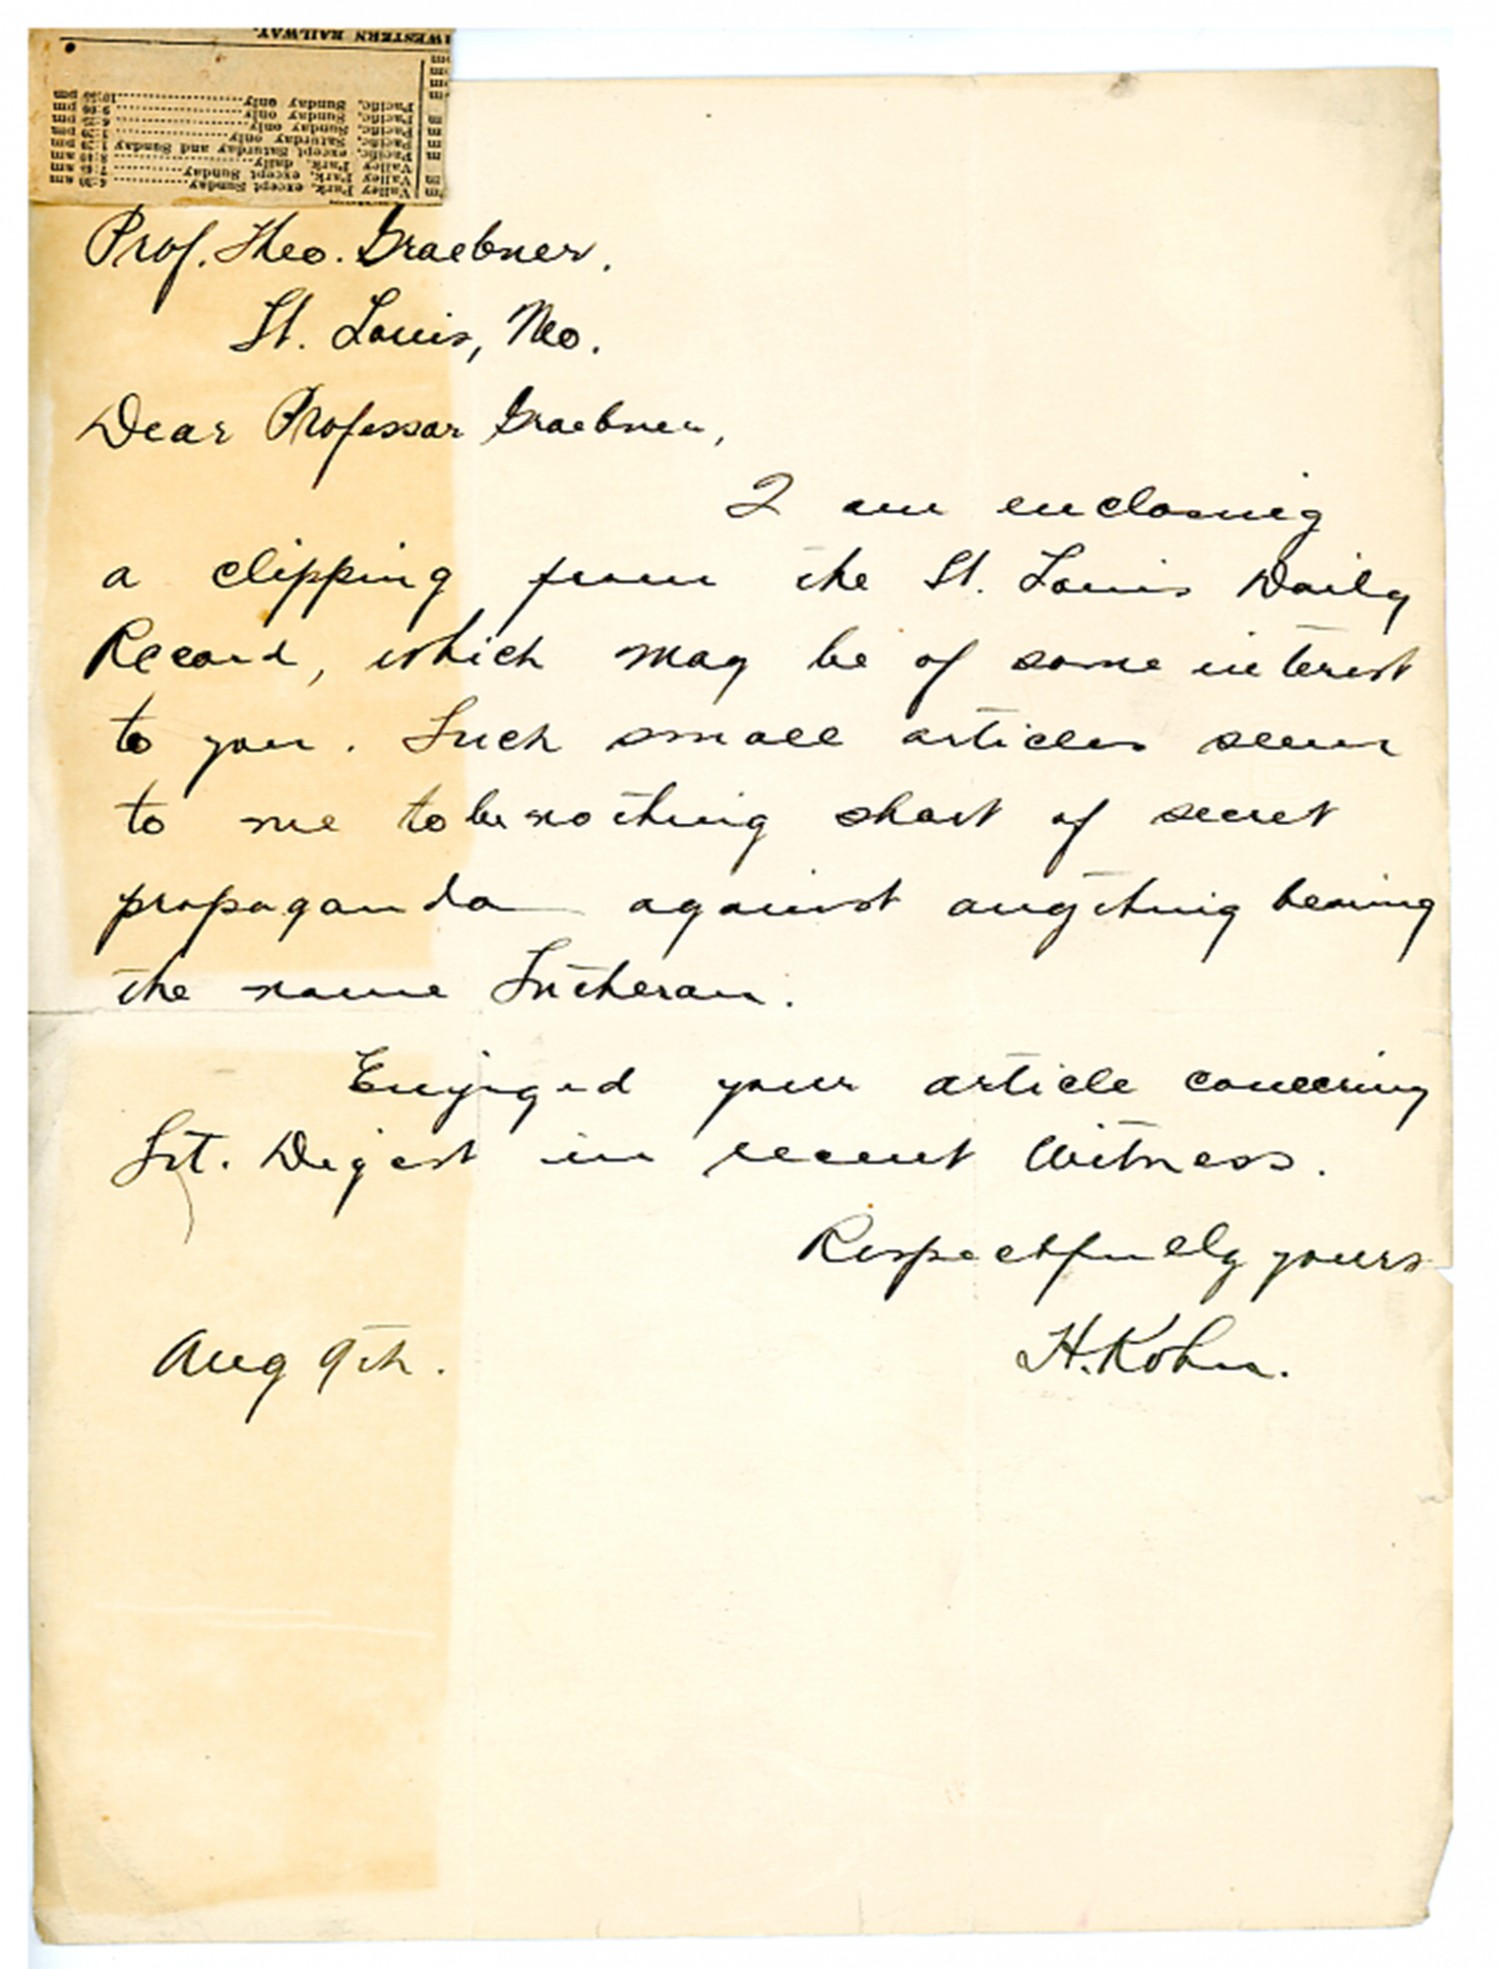 Valley Park, except Sunday am
Valley Park, except Sunday 7:45 am
Valley Park, daily 8:40 am
Pacific, except Saturday and Sunday 1:20 pm
Pacific, Saturday only 1:20 pm
Pacific, Sunday only 6:25 pm
Pacific, Sunday only 9:00 pm
Pacific, Sunday only 10:55 pm
WESTERN RAILWAY.
Prof. Theo. Graebner.
St. Louis, Mo.
Dear Professor Graebner,
I am enclosing
a clipping from the St. Louis Daily
Record, which may be of some interest
to you. Such small articles seem
to me to be nothing short of secret
propaganda against anything bearing
the name Lutheran.
Enjoyed your article concering
Lit. Digest in recent Witness.
Respectfully yours
H. Kohn.
Aug 9th.